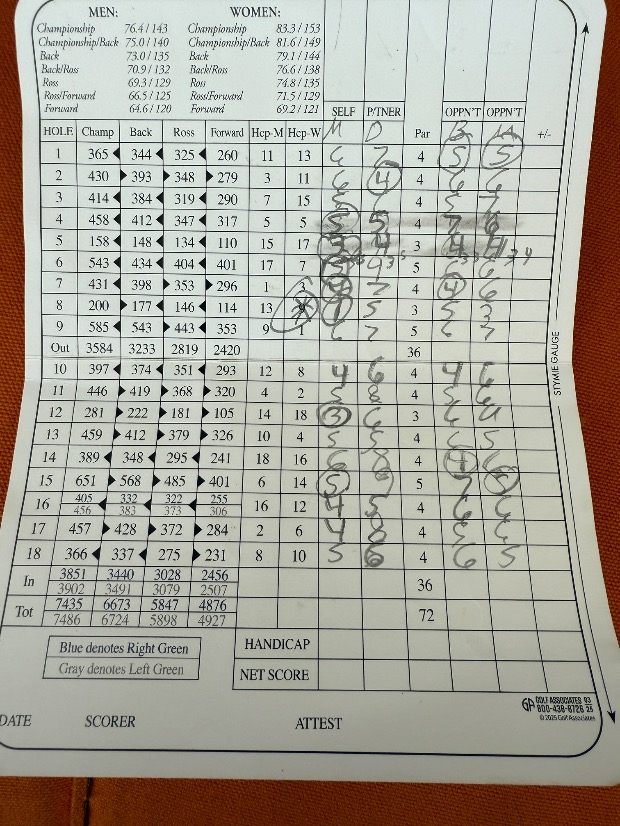 MEN: WOMEN:
Championship 76.4/143 Championship 83.3/153
Championship/Back 75.0/140 Championship/Back 81.6/149
Back 73.0/135 Back 79.1/144
Back/Ross 70.9/132 Back/Ross 76.6/138
Ross 69.3/129 Ross 74.8/135
Ross/Forward 66.5/125 Ross/Forward 71.5/129
Forward 64.6/120 Forward 69.2/121
SELF P/TNER OPPN'T OPPN'T
HOLE Champ Back Ross Forward Hcp-M Hcp-W M D Par B +/-
1 365 344 325 260 11 13 6 7 4 5 5
2 430 393 348 279 3 11 6 4 4 6 6
3 414 384 319 290 7 15 5 6 4 5 7
4 458 412 347 317 5 5 5 5 4 7 6
5 158 148 134 110 15 17 3 4 3 4 4
6 543 434 404 401 17 7 5
7 431 398 353 296 1 3 4 7 4 4 6
8 200 177 146 114 13 1 5 3 5 3
9 585 543 443 353 9 1 6 7 5 6 7
Out 3584 3233 2819 2420 36
10 397 374 351 293 12 8 4 6 4 4 6
11 446 419 368 320 4 2 5 8 4 5 6
12 281 222 181 105 14 18 3 6 3 6 4
13 459 412 379 326 10 4 5 5 4 6 5
14 389 348 295 241 18 16 6 8 4 4 6
15 651 568 485 401 6 14 5 5 7 5
16 405 332 322 255 16 12 4 5 4 6 6
456 383 373 306
17 457 428 372 284 2 6 4 8 4 5 6
18 366 337 275 231 8 10 5 6 4 6 5
In 3851 3440 3028 2456 36
3902 3491 3079 2507
Tot 7435 6673 5847 4876 72
7486 6724 5898 4927
Blue denotes Right Green HANDICAP
Gray denotes Left Green NET SCORE
STYMIE GAUGE
GA GOLF ASSOCIATES
800-438-8726
© 2025 Golf Associates
DATE SCORER ATTEST